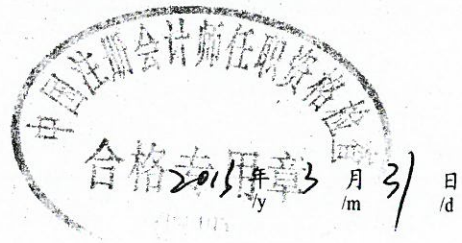 中国注册会计师任职资格检查
合格专用章
2015 年 3 月 31 日
/y /m /d